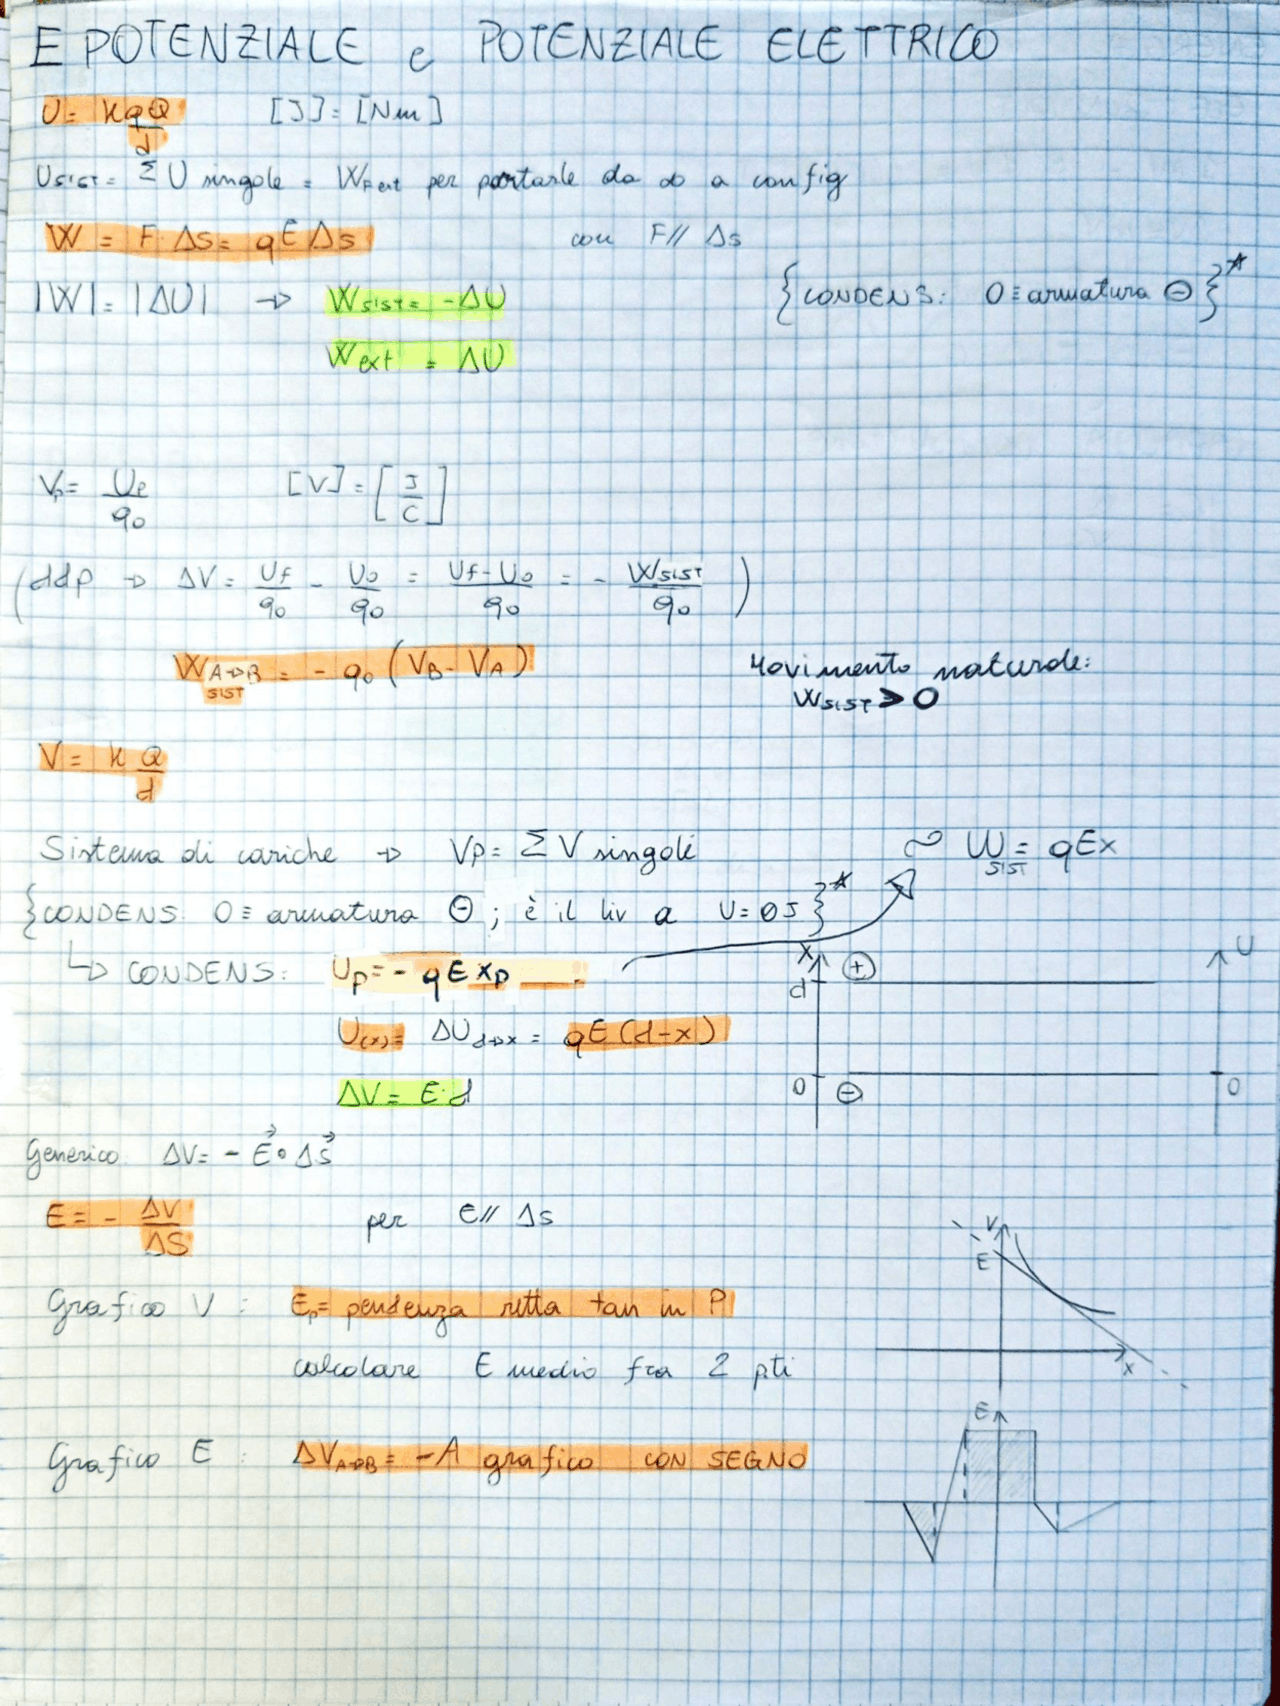 E POTENZIALE e POTENZIALE ELETTRICO
U = kqQ/d [J] = [Nm]
Usist = Σ U singole = WFext per portarle da ∞ a config
W = F·Δs = qEΔs con F// Δs
|W| = |ΔU| → Wsist = -ΔU {CONDENS: O ≡ armatura ⊖}*
Wext = ΔU
Vp = Up/q0 [V] = [J/C]
(ddp → ΔV = Uf/q0 - U0/q0 = Uf-U0/q0 = - Wsist/q0)
WA→B SIST = - q0 (VB - VA) Movimento naturale:
WSIST > 0
V = k Q/d
Sistema di cariche → Vp = Σ V singoli W SIST = qEx
{CONDENS: O ≡ armatura ⊖; è il liv a U = 0J}*
↳ CONDENS: Up = - qExp
U(x) = ΔUd→x = qE(d-x)
ΔV = E·d
x d 0 ⊕ ⊖ U 0
Generico: ΔV = - E⃗ • Δs⃗
E = - ΔV/ΔS per E// Δs
Grafico V: Ep = pendenza retta tan in P
calcolare E medio fra 2 pti
V E x
Grafico E: ΔVA→B = -A grafico CON SEGNO
E